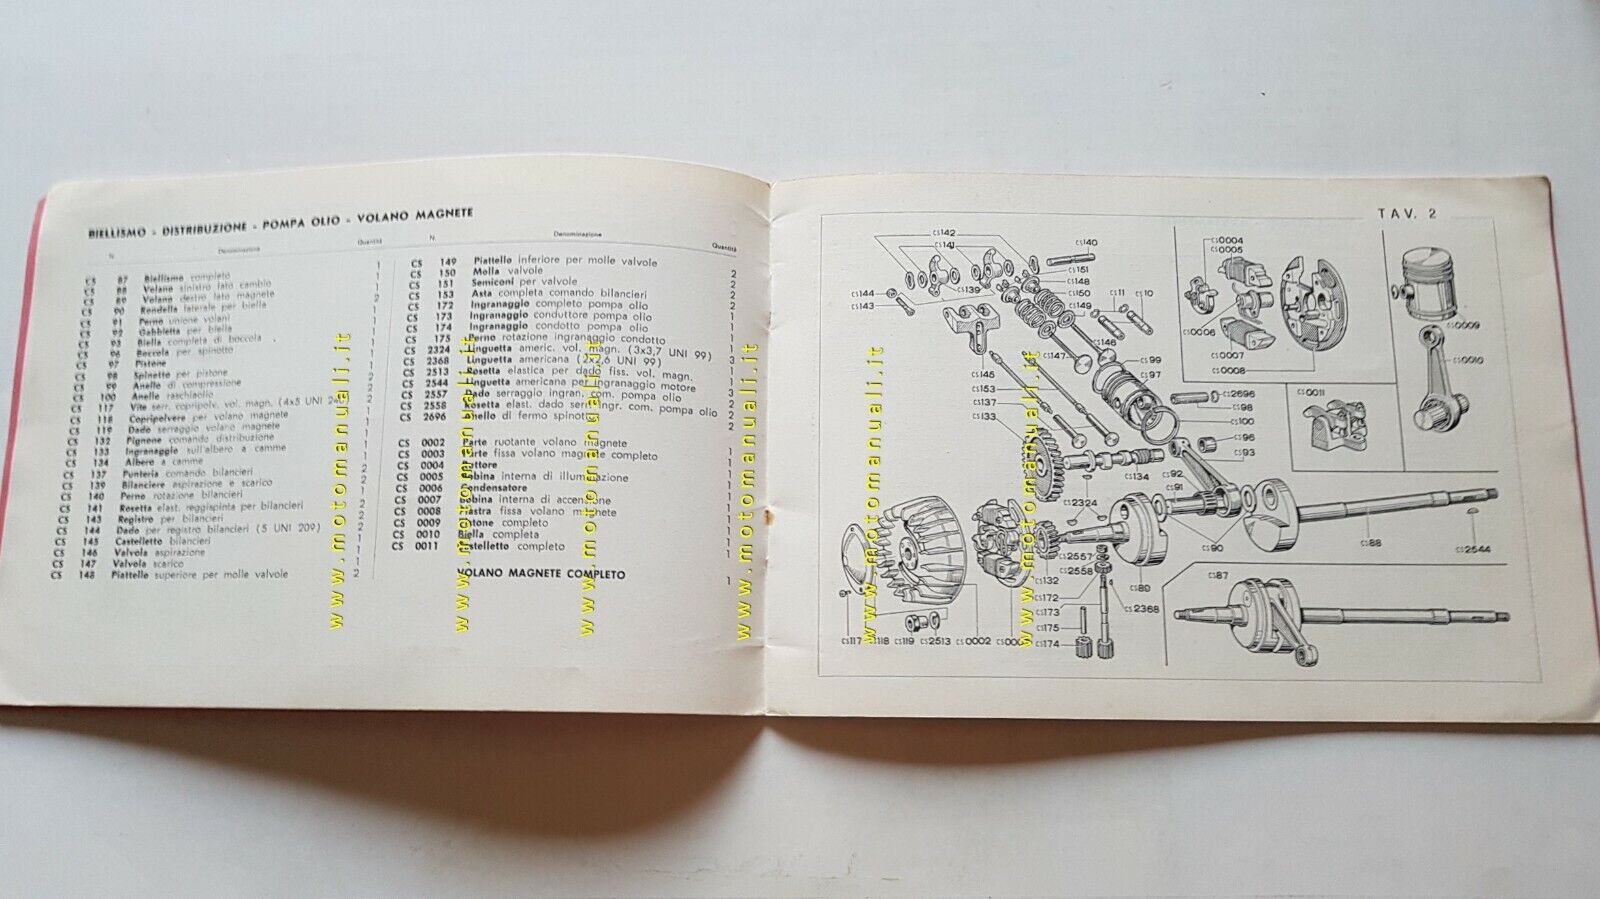 BIELLISMO - DISTRIBUZIONE - POMPA OLIO - VOLANO MAGNETE
N. Denominazione Quantità
CS 87 Biellismo completo 1
CS 88 Volano sinistro lato cambio 1
CS 89 Volano destro lato magnete 1
CS 90 Rondella laterale per biella 2
CS 91 Perno unione volani 1
CS 92 Gabbietta per biella 1
CS 93 Biella completa di boccola 1
CS 96 Boccola per spinotto 1
CS 97 Pistone 1
CS 98 Spinotto per pistone 1
CS 99 Anello di compressione 2
CS 100 Anello raschiaolio
CS 117 Vite serr. copripolv. vol. magn. (4x5 UNI 240)
CS 118 Copripolvere per volano magnete
CS 119 Dado serraggio volano magnete
CS 132 Pignone comando distribuzione
CS 133 Ingranaggio sull'albero a camme
CS 134 Albero a camme
CS 137 Punteria comando bilancieri
CS 139 Bilanciere aspirazione e scarico
CS 140 Perno rotazione bilancieri
CS 141 Rosetta elast. reggispinta per bilancieri
CS 143 Registro per bilancieri
CS 144 Dado per registro bilancieri (5 UNI 209)
CS 145 Castelletto bilancieri 1
CS 146 Valvola aspirazione 1
CS 147 Valvola scarico 1
CS 148 Piattello superiore per molle valvole 2
N. Denominazione Quantità
CS 149 Piattello inferiore per molle valvole 2
CS 150 Molla valvole 2
CS 151 Semiconi per valvole
CS 153 Asta completa comando bilancieri
CS 172 Ingranaggio completo pompa olio
CS 173 Ingranaggio conduttore pompa olio
CS 174 Ingranaggio condotto pompa olio
CS 175 Perno rotazione ingranaggio condotto
CS 2324 Linguetta americ. vol. magn. (3x3,7 UNI 99)
CS 2368 Linguetta americana (2x2,6 UNI 99)
CS 2513 Rosetta elastica per dado fiss. vol. magn.
CS 2544 Linguetta americana per ingranaggio motore
CS 2557 Dado serraggio ingran. com. pompa olio
CS 2558 Rosetta elast. dado serr. ingr. com. pompa olio
CS 2696 Anello di fermo spinotto 2
CS 0002 Parte ruotante volano magnete 1
CS 0003 Parte fissa volano magnete completo 1
CS 0004 Ruttore 1
CS 0005 Bobina interna di illuminazione 1
CS 0006 Condensatore 1
CS 0007 Bobina interna di accensione 1
CS 0008 Piastra fissa volano magnete 1
CS 0009 Pistone completo 1
CS 0010 Biella completa 1
CS 0011 Castelletto completo 1
VOLANO MAGNETE COMPLETO 1
www.motomanuali.it
www.motomanuali.it
www.motomanuali.it
www.motomanuali.it
TAV. 2
CS142
CS141
CS140
CS151
CS148
CS150
CS149
CS11
CS10
CS144
CS143
CS139
CS146
CS147
CS99
CS97
CS145
CS153
CS137
CS133
CS2696
CS98
CS100
CS96
CS93
CS134
CS92
CS91
CS2324
CS90
CS88
CS2544
CS2557
CS2558
CS132
CS89
CS172
CS173
CS175
CS174
CS2368
CS87
CS117
CS118
CS119
CS2513
CS0002
CS0004
CS0005
CS0006
CS0007
CS0008
CS0009
CS0010
CS0011
www.motomanuali.it
www.motomanuali.it